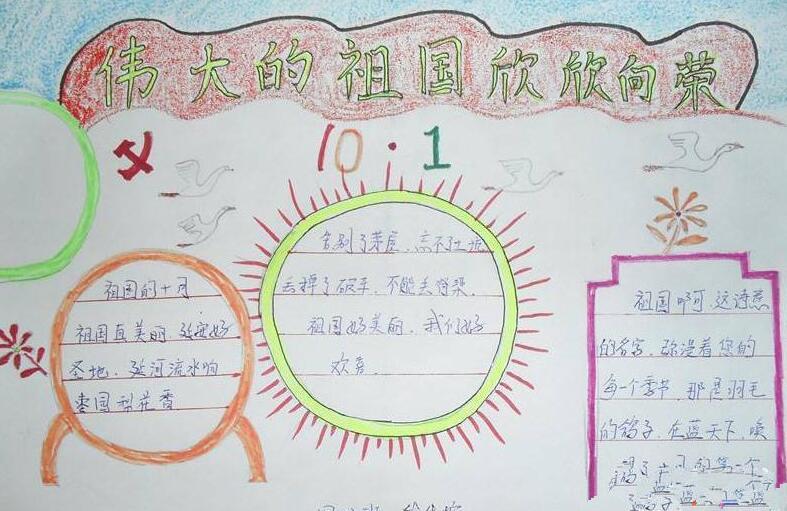 伟大的祖国欣欣向荣
10·1
祖国的十月
祖国真美丽,延安好
圣地,延河流水响
枣园梨花香
告别了茅屋,忘不了土坑
丢掉了破车,不能丢脊梁
祖国好美丽,我们好
欢喜
祖国啊,这诗意
的名字,弥漫着您的
每一个季节,那是羽毛
的鸽子,在蓝天下,唤